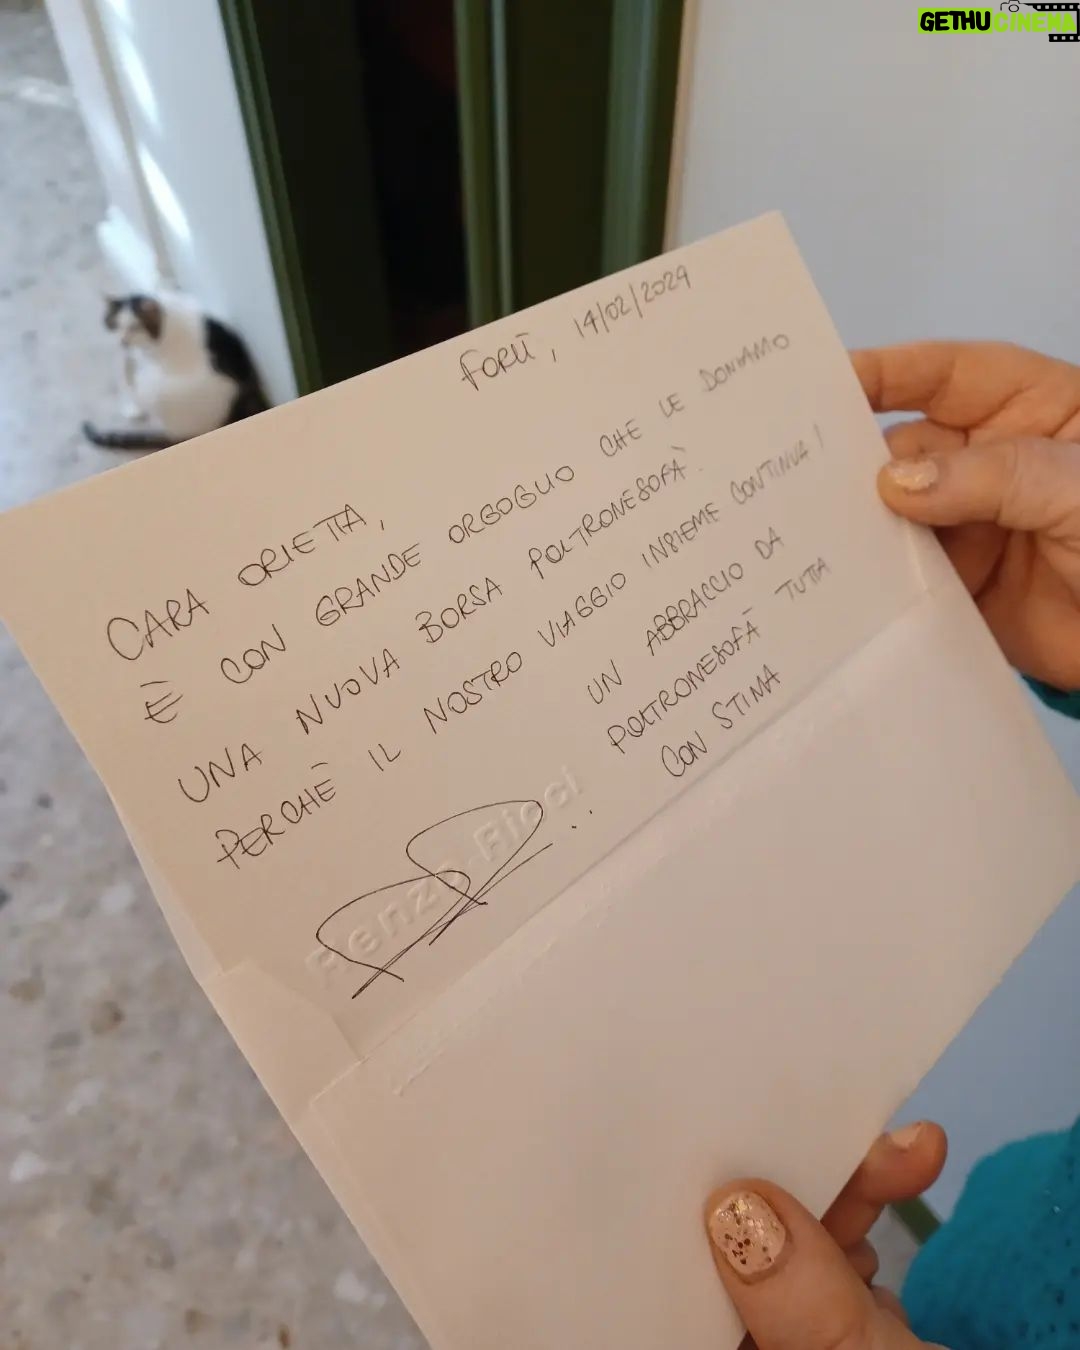 GETHUCINEMA
Forlì, 14/02/2024
CARA ORIETTA,
È CON GRANDE ORGOGLIO CHE LE DONIAMO
UNA NUOVA BORSA POLTRONESOFÀ
PERCHÈ IL NOSTRO VIAGGIO INSIEME CONTINUA!
UN ABBRACCIO DA
POLTRONESOFÀ TUTTA
CON STIMA
Renzo Ricci